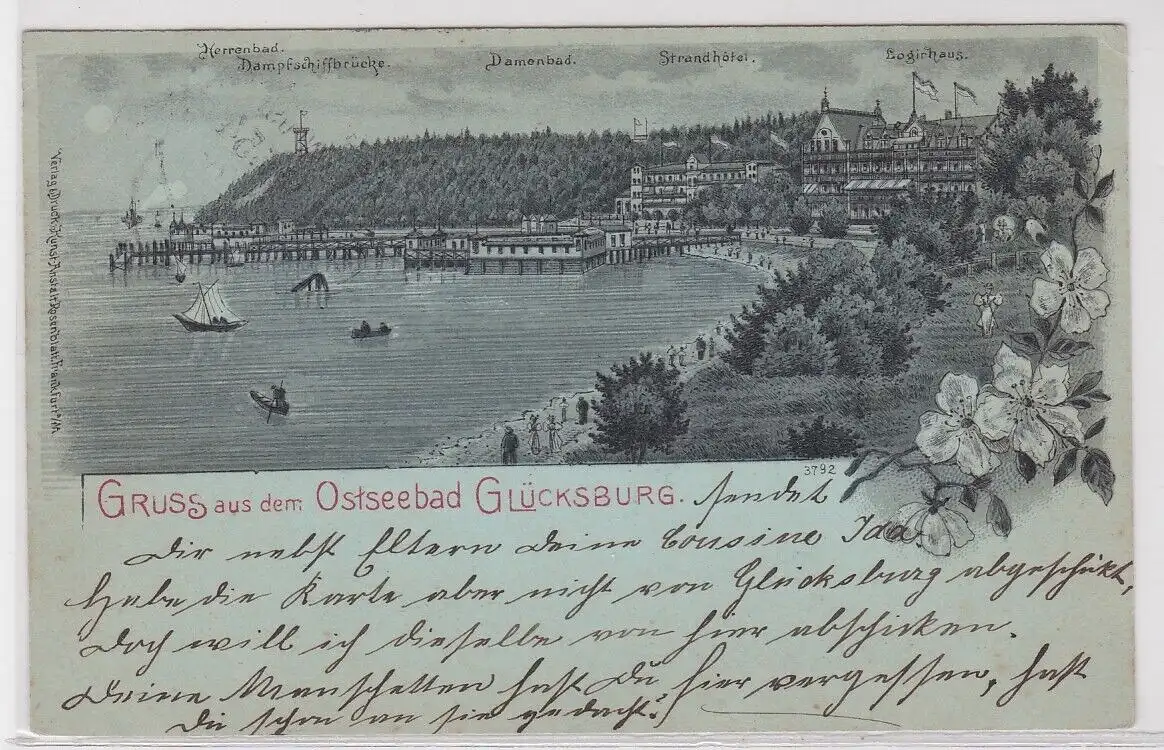 Herrenbad.
Dampfschiffbrücke.
Damenbad.
Strandhôtel.
Logirhaus.
Verlag u. Druck v. Kunst-Anstalt Rosenblatt, Frankfurt a/M.
3792
GRUSS aus dem Ostseebad GLÜCKSBURG. sendet
Dir nebst Eltern deine Cousine Ida
Habe die Karte aber nicht von Glücksburg abgeschikt,
doch will ich dieselbe von hier abschicken.
Deine Manschetten hast Du hier vergessen, hast
Du schon an sie gedacht?